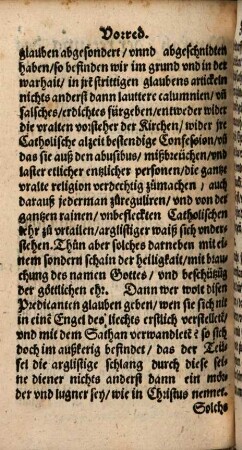 Vorred.
glauben abgesondert/ vnnd abgeschnidten
haben/ so befinden wir im grund vnd in der
warhait/ in jrē strittigen glaubens artickeln
nichts anderst dann lautere calumnien/ vñ
falsches/ erdichtes fürgeben/ entweder wider
die vralten vorsteher der Kirchen/ wider jre
Catholische alzeit bestendige Confession/ vñ
das sie auß den abusibus/ mißbreüchen/ vnd
laster etlicher entzlicher personen/ die gantze
vralte religion verdechtig zůmachen/ auch
darauß jederman zůreguliren/ vnd von der
gantzen rainen/ vnbefleckten Catholischen
lehr zů vrtailen/ arglistiger waiß sich vnder-
stehen. Thůn aber solches datneben mit ei-
nem sondern schain der heiligkait/ mit brau-
chung des namen Gottes/ vnd beschützũg
der göttlichen ehr. Dann wer wolt disen
Predicanten glauben geben/ wen sie sich nit
in einē Engel des liechts erstlich verstelleten/
vnd mit dem Sathan verwandletē? so sich
doch im außkerig befindet/ das der Teü-
fel die arglistige schlang durch diese sei-
ne diener nichts anderst dann ein mör-
der vnd lugner sey/ wie in Christus nennet.
Solchs